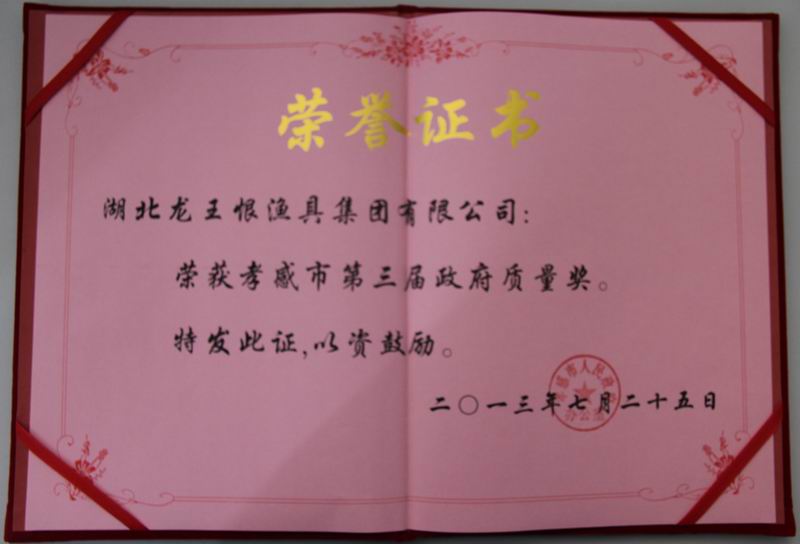 荣誉证书
湖北龙王恨渔具集团有限公司:
荣获孝感市第三届政府质量奖。
特发此证,以资鼓励。
二〇一三年七月二十五日
感市人民政
办公室